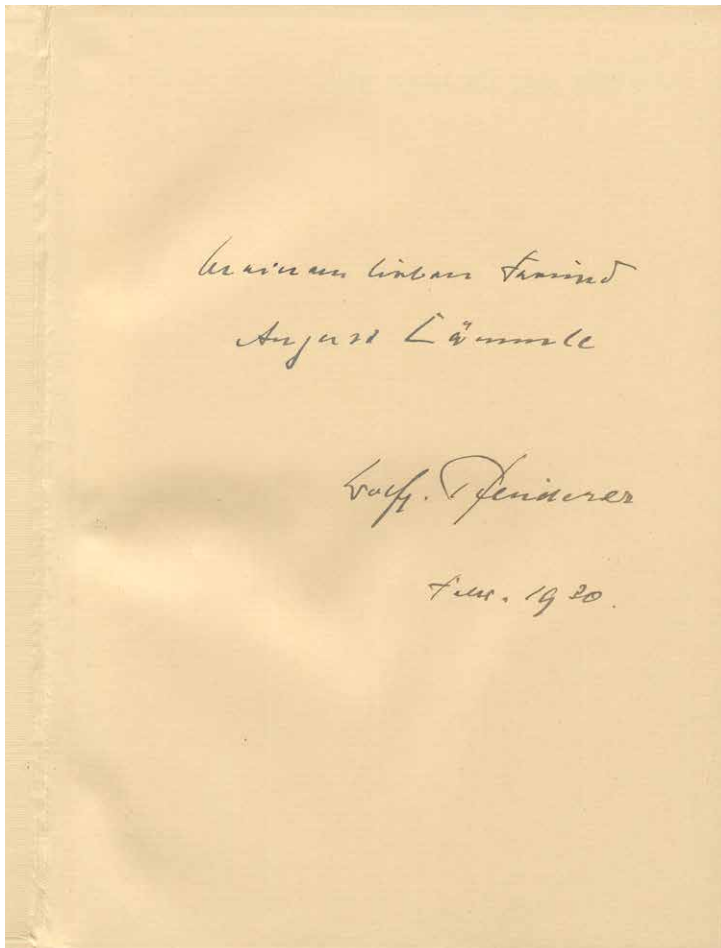 Meinem lieben Freund
August Lämmle
Wolfg. Pfleiderer
Febr. 1930.